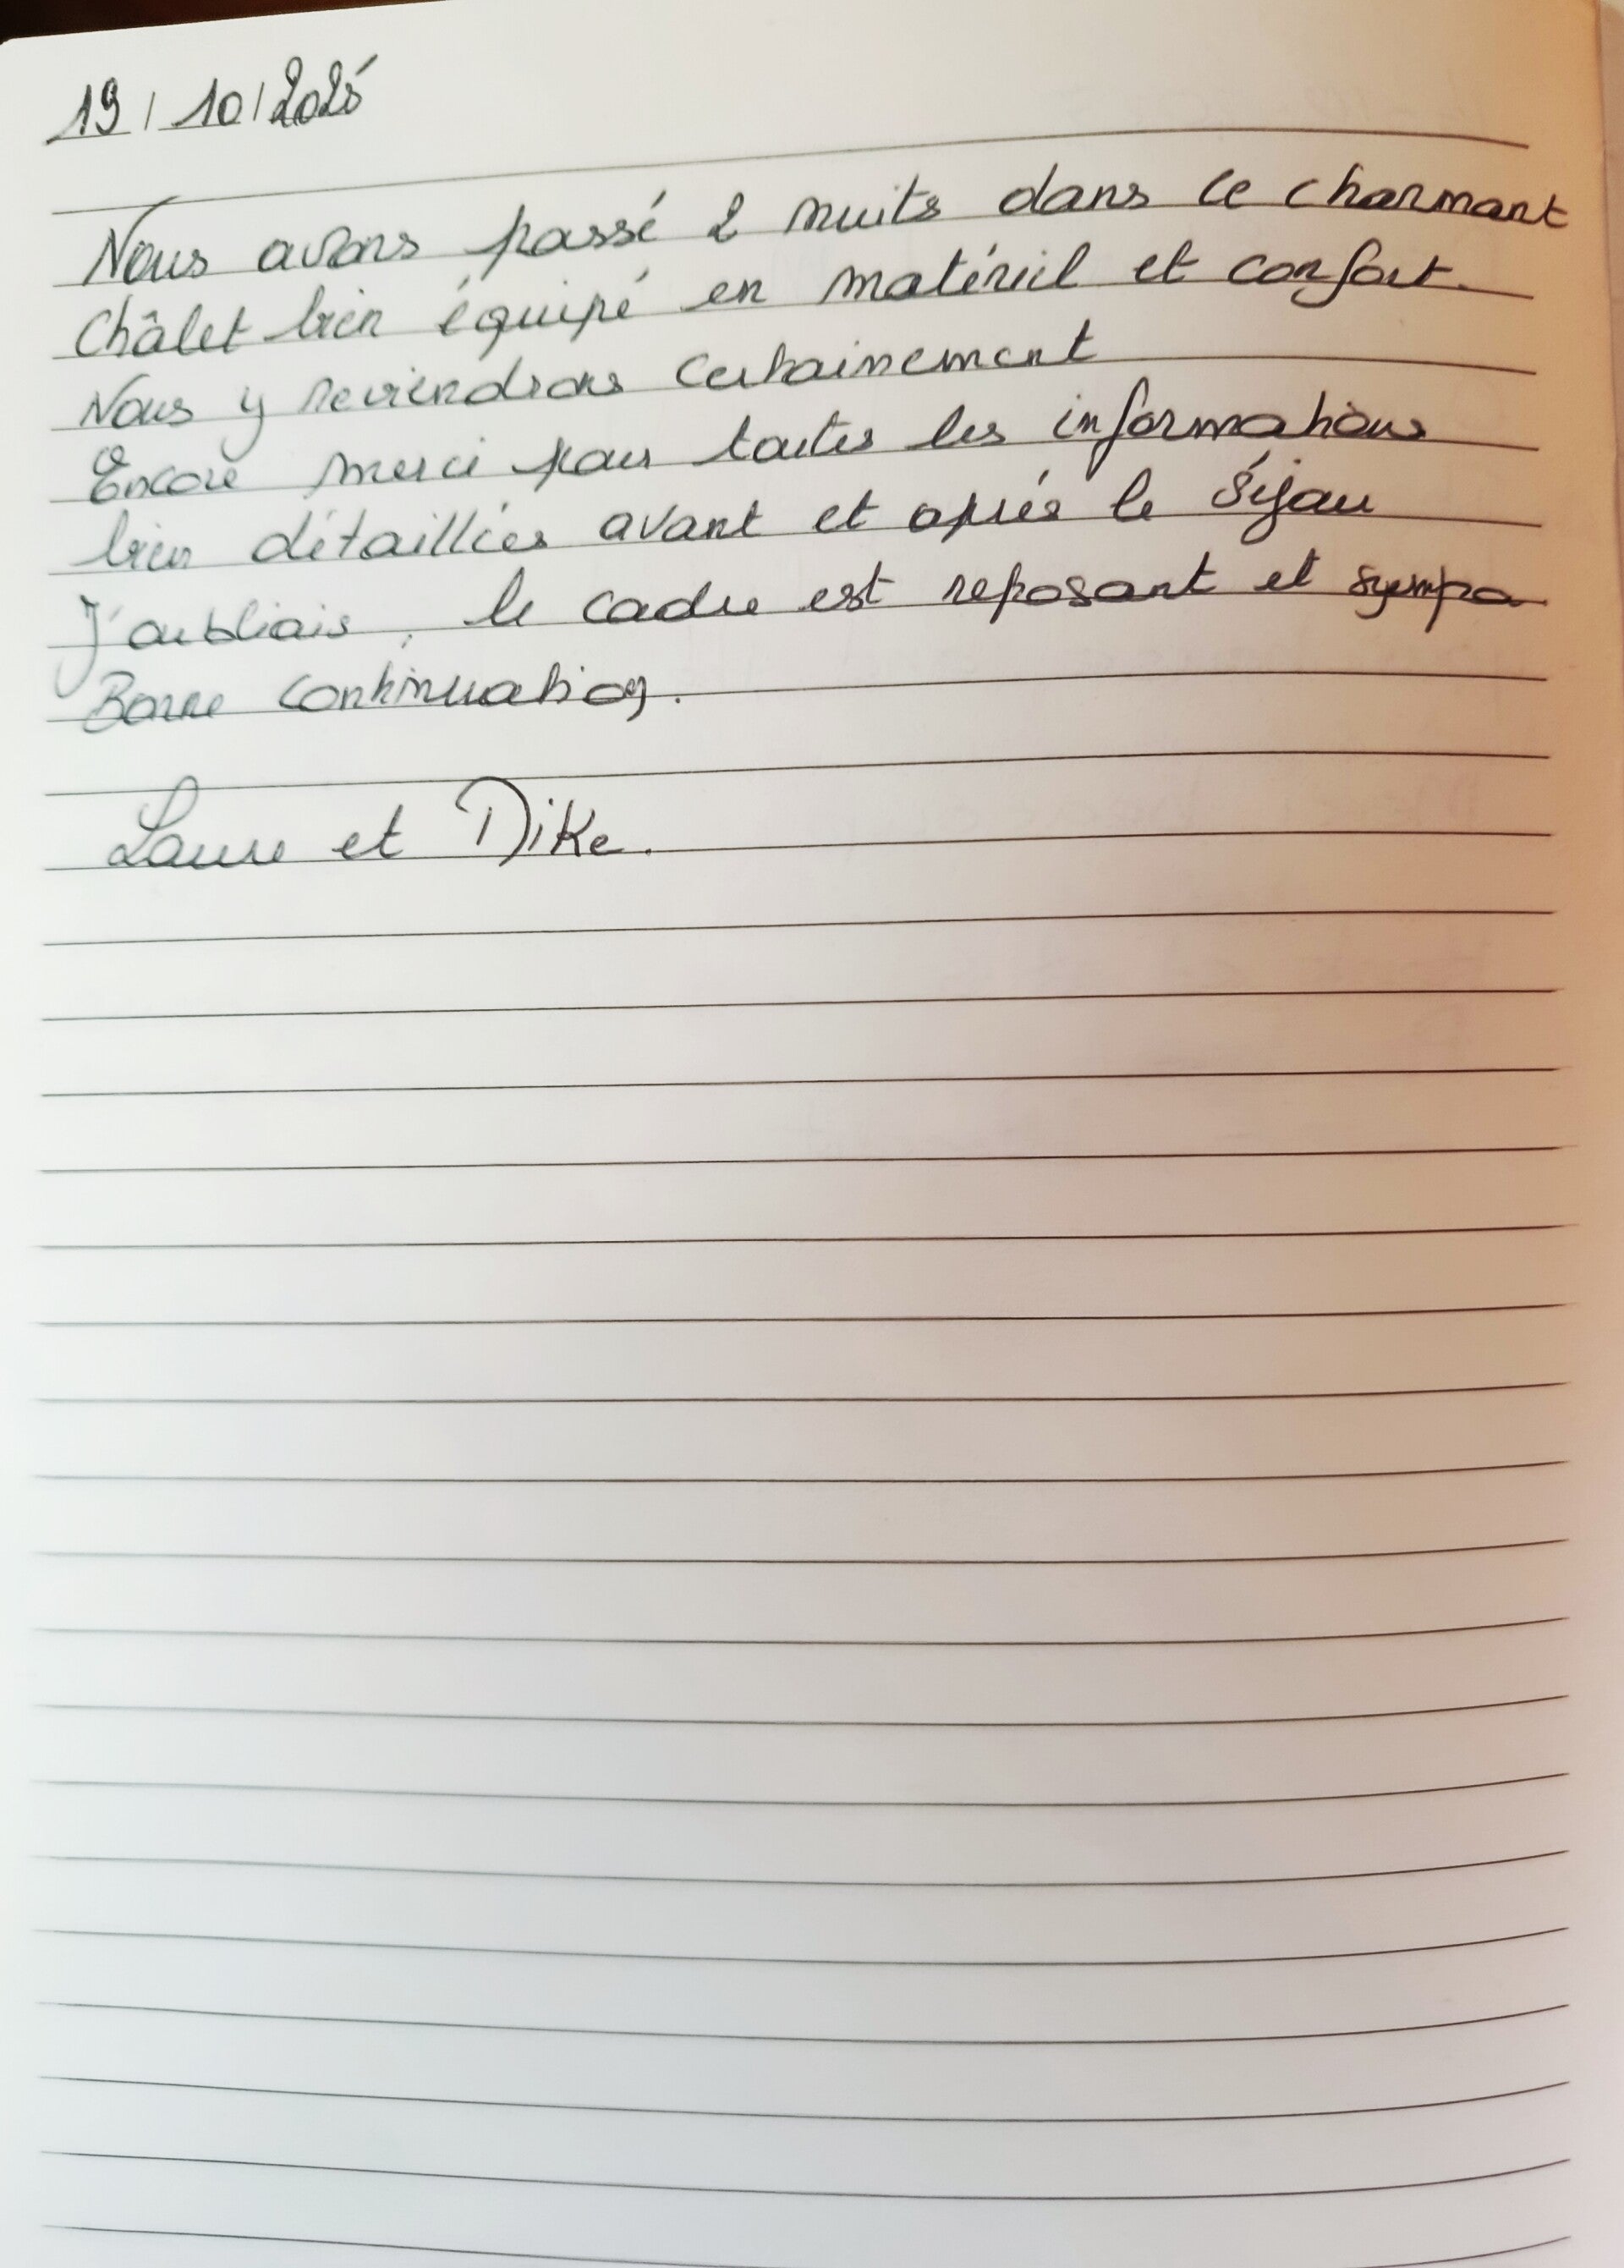 19/10/2025
Nous avons passé 2 nuits dans ce charmant
Châlet bien équipé en matériel et confort.
Nous y reviendrons certainement
Encore merci pour toutes les informations
bien détaillées avant et après le séjour
J'oubliais, le cadre est reposant et sympa
Bonne continuation.
Laure et Dike.